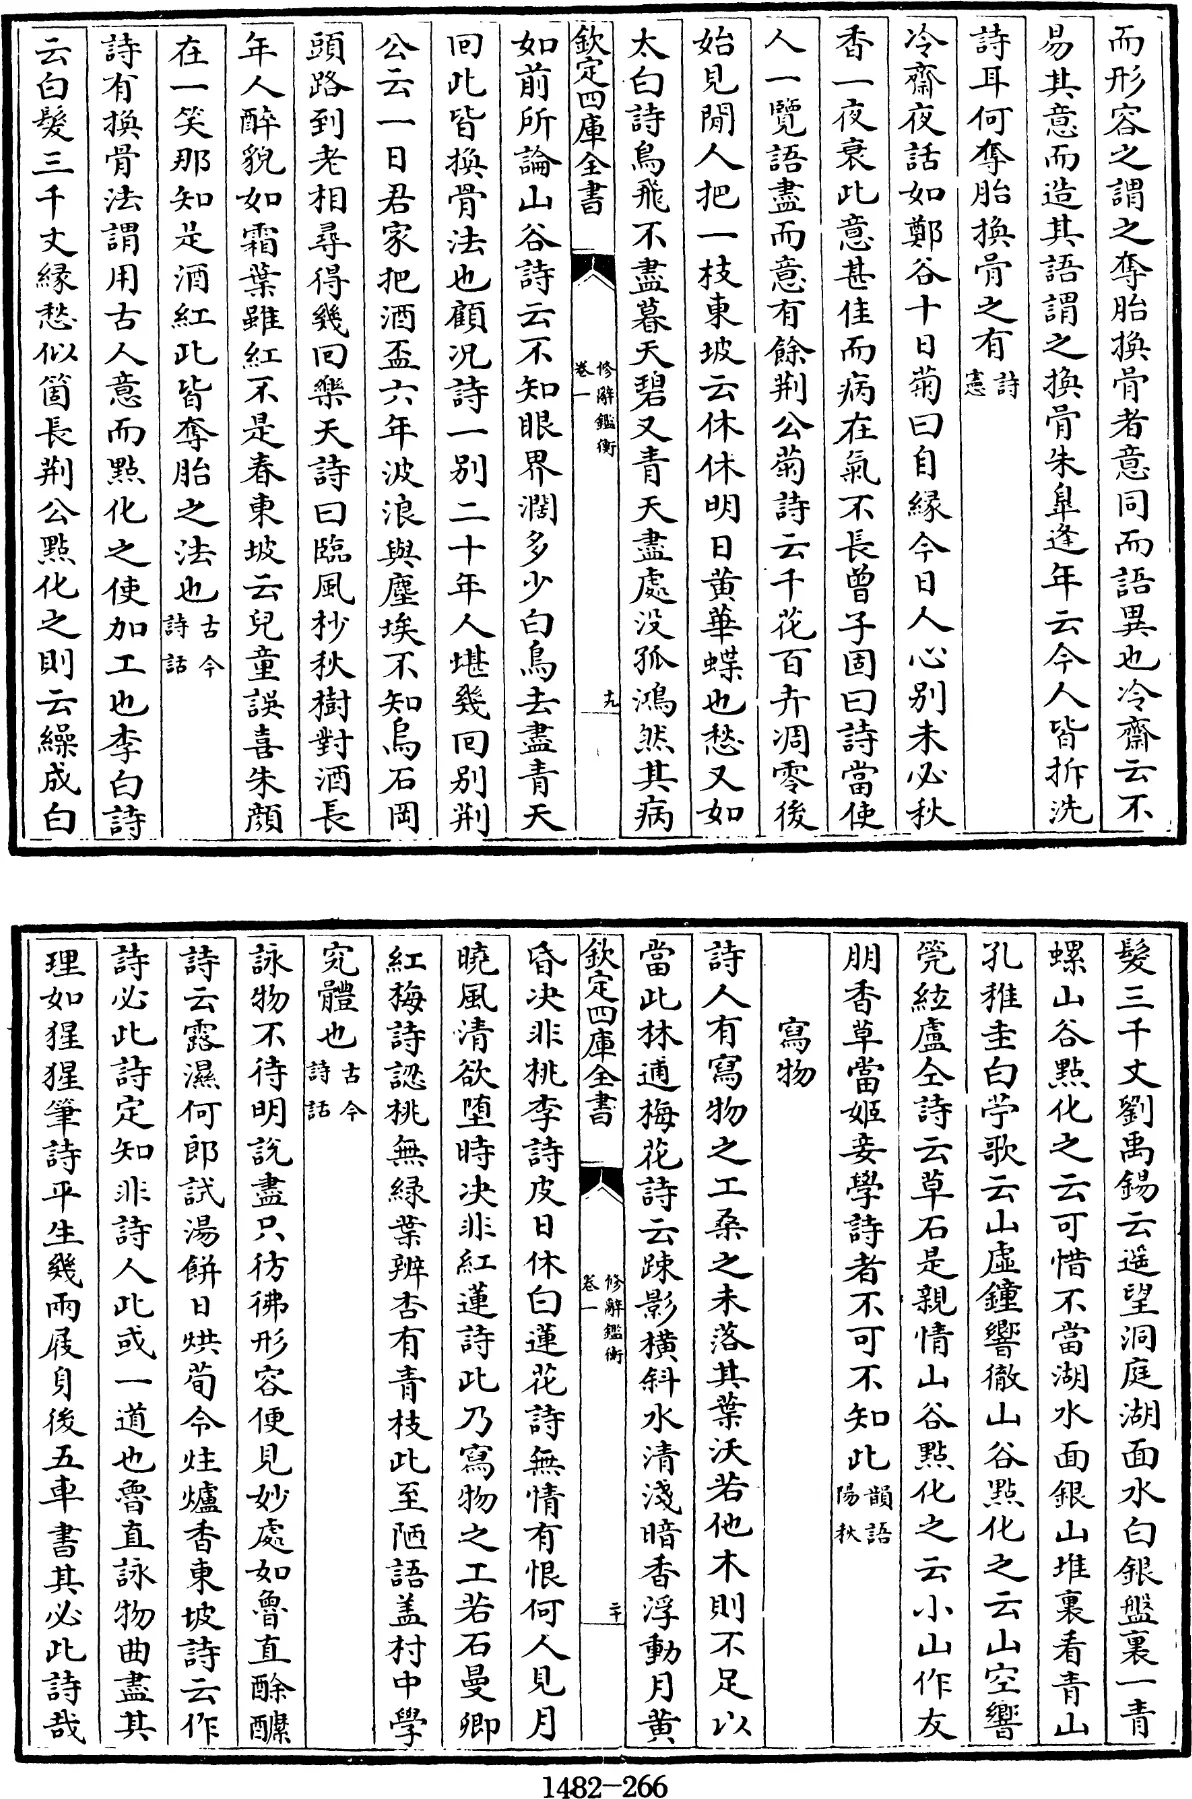 而形容之謂之奪胎換骨者意同而語異也冷齋云不
易其意而造其語謂之換骨朱臯逢年云今人皆拆洗
詩耳何奪胎換骨之有詩憲
冷齋夜話如鄭谷十日菊曰自縁今日人心别未必秋
香一夜衰此意甚佳而病在氣不長曾子固曰詩當使
人一覽語盡而意有餘荆公菊詩云千花百卉凋零後
始見閒人把一枝東坡云休休明日黄華蝶也愁又如
太白詩鳥飛不盡暮天碧又青天盡處没孤鴻然其病
欽定四庫全書
修辭鑑衡
卷一
十九
如前所論山谷詩云不知眼界濶多少白鳥去盡青天
囘此皆換骨法也顧况詩一别二十年人堪幾囘别荆
公云一日君家把酒盃六年波浪與塵埃不知烏石岡
頭路到老相尋得幾囘樂天詩曰臨風杪秋樹對酒長
年人醉貌如霜葉雖紅不是春東坡云兒童誤喜朱顔
在一笑那知是酒紅此皆奪胎之法也古今詩話
詩有換骨法謂用古人意而點化之使加工也李白詩
云白髮三千丈縁愁似箇長荆公點化之則云繰成白
髮三千丈劉禹錫云遥望洞庭湖面水白銀盤裏一青
螺山谷點化之云可惜不當湖水面銀山堆裏看青山
孔稚圭白苧歌云山虚鐘響徹山谷點化之云山空響
筦絃盧仝詩云草石是親情山谷點化之云小山作友
朋香草當姬妾學詩者不可不知此韻語陽秋
寫物
詩人有寫物之工桑之未落其葉沃若他木則不足以
當此林逋梅花詩云踈影横斜水清淺暗香浮動月黄
欽定四庫全書
修辭鑑衡
卷一
二十
昏决非桃李詩皮日休白蓮花詩無情有恨何人見月
曉風清欲堕時决非紅蓮詩此乃寫物之工若石曼卿
紅梅詩認桃無緑葉辨杏有青枝此至陋語盖村中學
究體也古今詩話
詠物不待明説盡只彷彿形容便見妙處如魯直酴醿
詩云露濕何郎試湯餅日烘荀令炷爐香東坡詩云作
詩必此詩定知非詩人此或一道也魯直詠物曲盡其
理如猩猩筆詩平生幾兩屐身後五車書其必此詩哉
1482-266